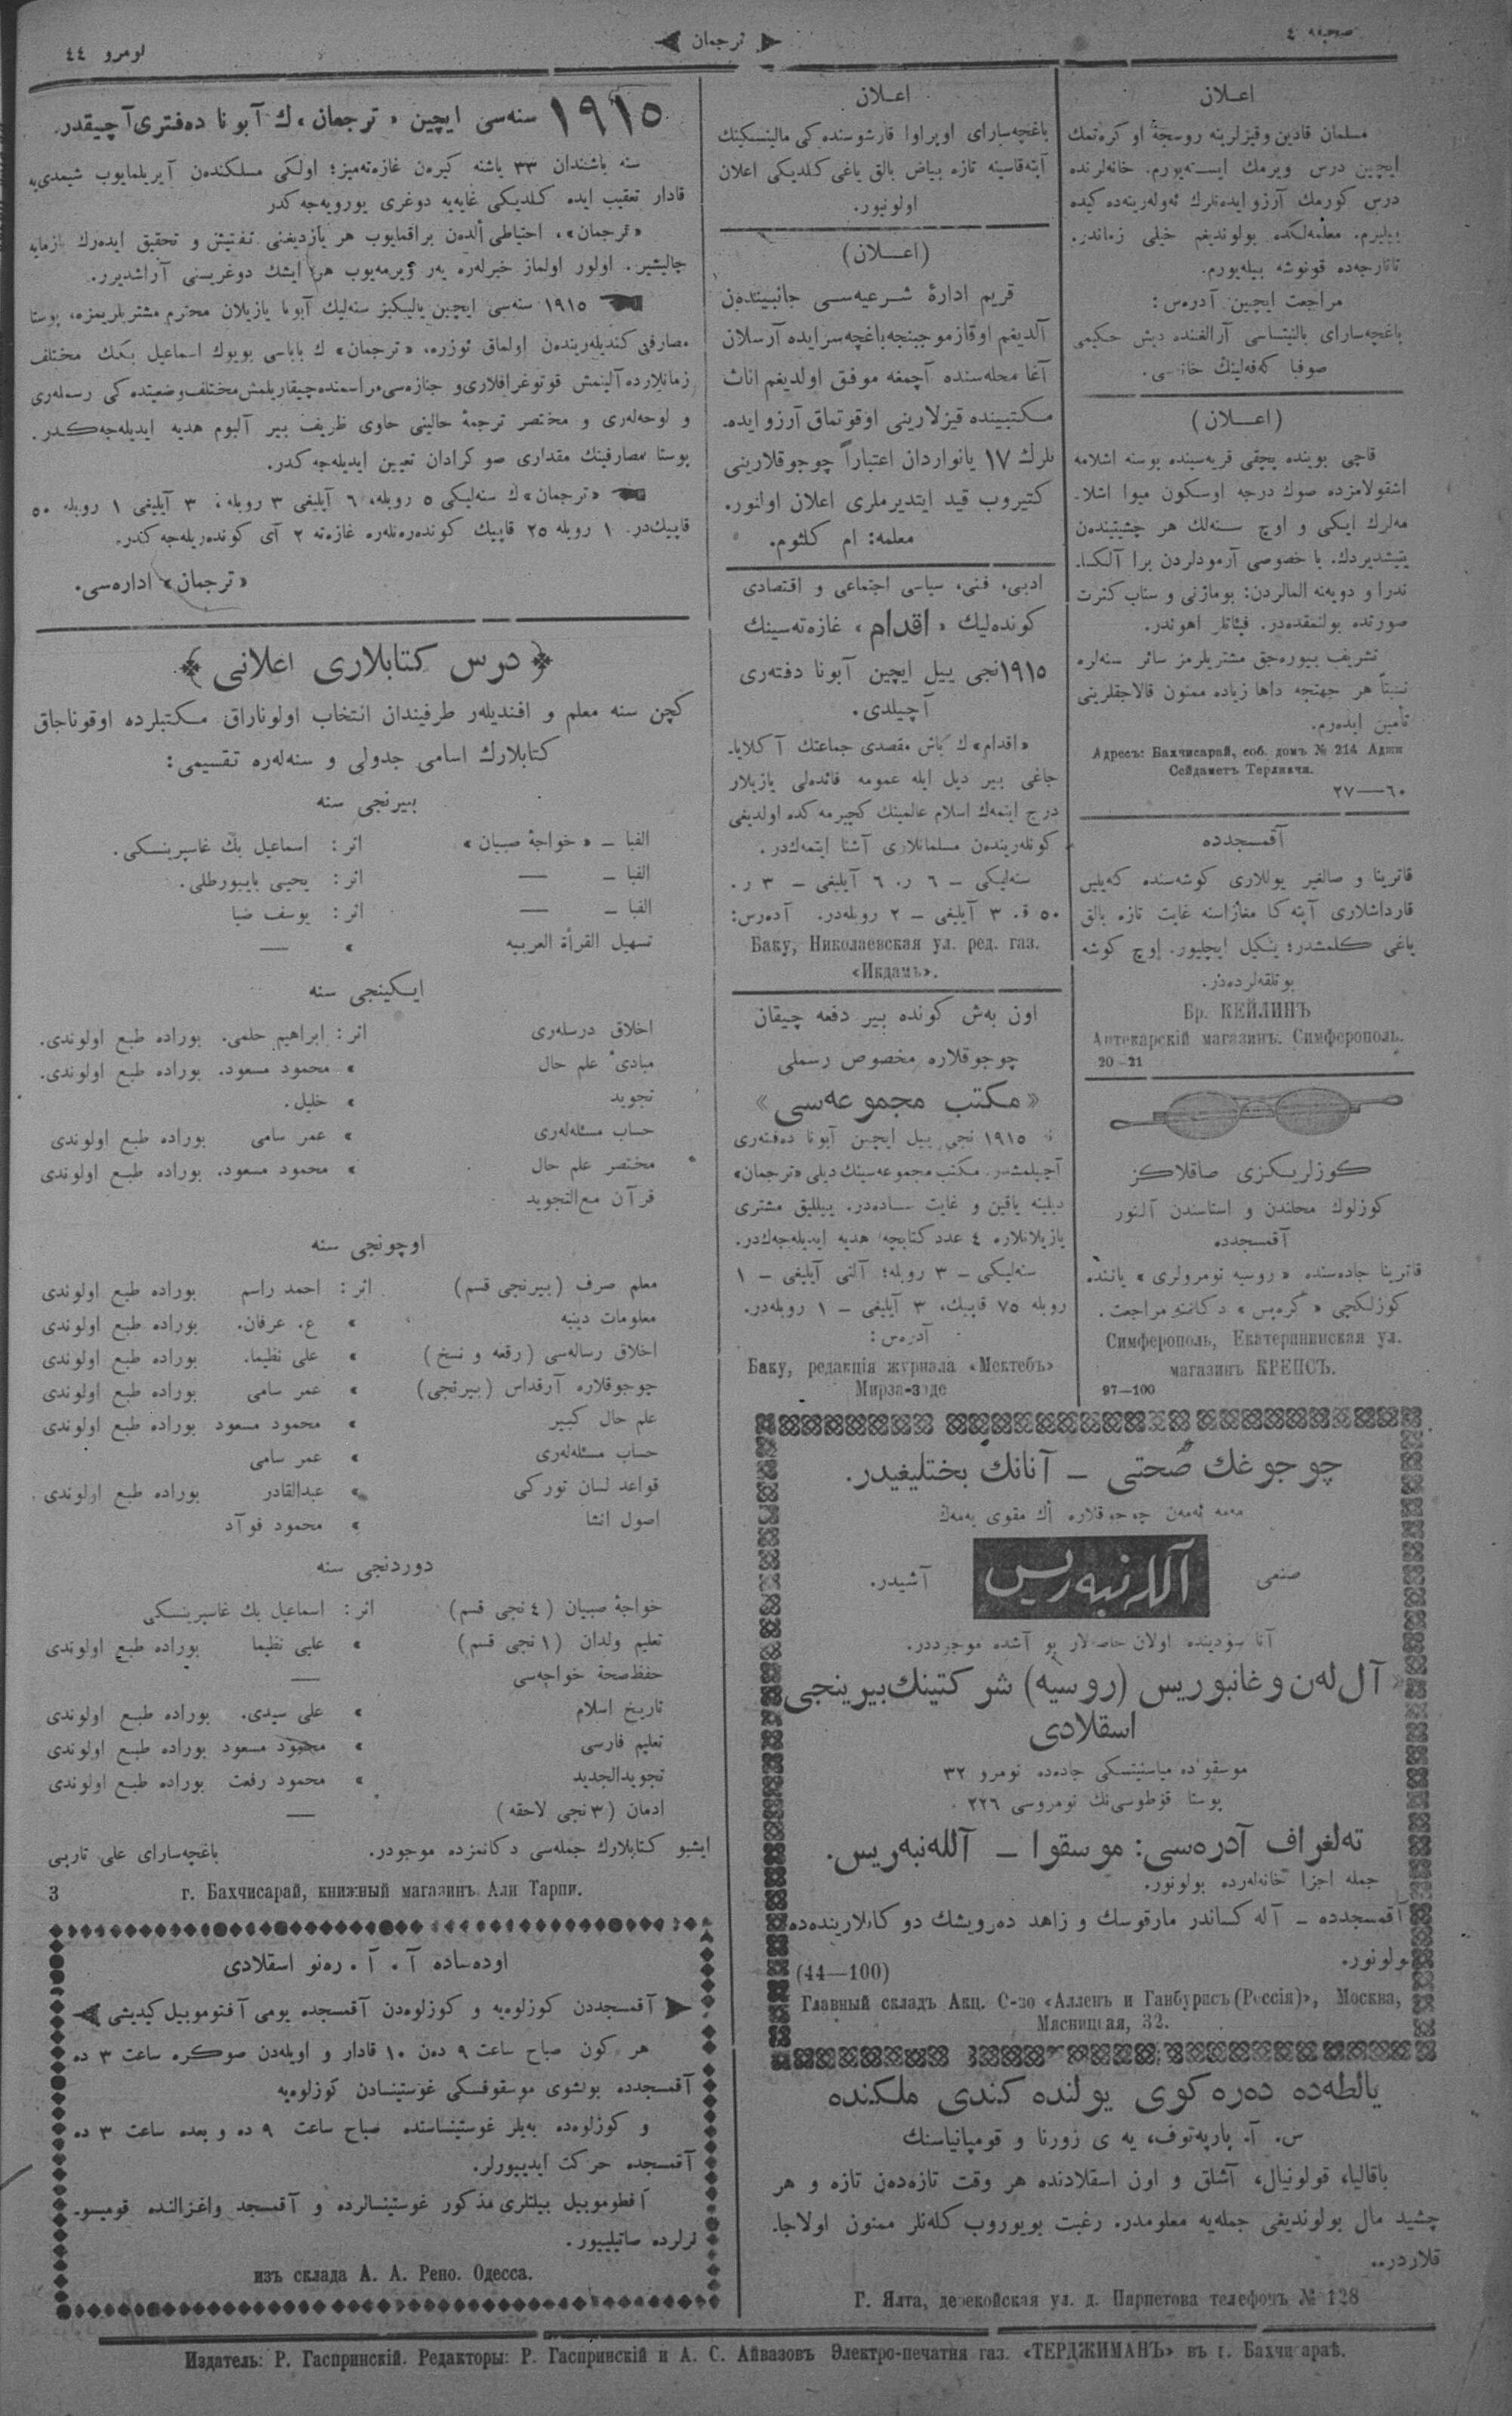 صحیفه ٤
ترجمان
نومرو ٤٤
اعــلان
مسلمان قادین وقیزلرینه روسجهٔ اوکره‌تمك
ایچین درس ویرمك ایسته‌یورم. خانه‌لرنده
درس کورمك آرزو ایده‌نلرك ئه‌ولرینه‌ده کیده
بیلیرم. معلمه‌لکده بولوندیغم خیلی زماندر.
تاتارجه‌ده قونوشه بیله‌یورم.
مراجعت ایچین آدره‌س:
باغچه‌سارای
صوفیا
(اعــلان)
تشریف بیوره‌جق مشتریلرمز سائر سنه‌لره
نسبتاً هر جهتجه داها زیاده ممنون قالاجقلرینی
تأمین ایده‌رم.
Адресъ: Бахчисарай, соб. домъ № 214 Аджи
Сейдаметъ Терликчи.
٦٠—٢٧
آقمسجدده
قاترینا و صالغیر یوللاری کوشه‌سنده که‌یلین
قارداشلاری آپته‌کا مغازاسنه غایت تازه بالق
یاغی کلمشدر؛ یتکیل ایچلیور. اوچ کوشه
بوتلقه‌لرده‌در.
Бр. КЕЙЛИНЪ
Аптекарскій магазинъ. Симферополь.
20—21
کوزلریکزی صاقلاکز
کوزلوك محلندن و استاسندن آلنور
آقمسجدده
قاترینا جاده‌سنده «روسیه نومرولری» یاننده
کوزلکچی «کره‌پس» دکاننه مراجعت.
Симферополь, Екатерининская ул.
магазинъ КРЕПСЪ.
97—100
اعــلان
باغچه‌سارای اوپراوا قارشوسنده‌کی مالینسکینك
آپته‌قاسینه تازه بیاض بالق یاغی کلدیکی اعلان
اولونیور.
(اعــلان)
قریم ادارهٔ شــرعیه‌ســی جانبیندەن
آلدیغم اوقازموجبنجه‌باغچه‌سرایده آرسلان
آغا محله‌سنده آچمغه موفق اولدیغم اناث
مکتبینده قیزلارینی اوقوتماق آرزو ایده‌
نلرك ١٧ یانواردان اعتباراً چوجوقلارینی
کتیروب قید ایتدیرملری اعلان اولنور.
معلمه: ام کلثوم.
ادبی، فنی، سیاسی اجتماعی و اقتصادی
کونده‌لیك «اقدام» غازه‌ته‌سینك
١٩١٥نجی ییل ایچین آبونا دفته‌ری
آچیلدی.
«اقدام»ك باش مقصدی جماعتك آکلایا‌
جاغی بیر دیل ایله عمومه فائده‌لی یازیلار
درج ایتمه‌ك اسلام عالمینك کچیرمه‌کده اولدیغی
کونله‌ریندەن مسلمانلاری آشنا ایتمه‌ك‌در.
سنه‌لیکی — ٦ ر. ٦ آیلیغی — ٣ ر.
٥٠ ق. ٣ آیلیغی — ٢ روبله‌در. آدەرس:
Баку, Николаевская ул. ред. газ.
«Икдамъ».
اون بەش کونده بیر دفعه چیقان
چوجوقلاره مخصوص رسملی
«مکتب مجموعه‌سی»
١٩١٥ نجی ییل ایچین آبونا دەفته‌ری
آچیلمشدر. مکتب مجموعه‌سینك دیلی «ترجمان»
دیلینه یاقین و غایت ساده‌در. ییللیق مشتری
یازیلانلاره ٤ عدد کتابچه هدیه ایدیله‌جه‌ك‌در.
سنه‌لیکی — ٣ روبله؛ آلتی آیلیغی — ١
روبله ٧٥ قاپیك، ٣ آیلیغی — ١ روبله‌در.
آدره‌س:
Баку, редакція журнала «Мектебъ»
Мирза-заде
چوجوغك صحتی — آنانك بختلیغیدر.
مه‌مه ئه‌مه‌ن چوجوقلاره أك مقوی یه‌مه‌ك
صنعی
آللەنبەریس
آشیدر.
آنا سودینده اولان خاصه‌لار بو آشده موجوددر.
«آل‌لەن و غانبوریس (روسیه) شرکتینك بیرینجی
اسقلادی
موسقوده میاسنیتسکی جاده‌ده نومرو ٣٢
پوستا قوطوسی‌نك نومروسی ٢٢٦.
تەلغراف آدره‌سی: موسقوا — آللەنبەریس.
جمله اجزا خانه‌لرده بولونور.
آقمسجدده — آله‌کساندر مارقوسك و زاهد ده‌رویشك دوکانلارینده‌ده
بولونور.
(44—100)
Главный складъ Акц. О-во «Алленъ и Ганбурисъ (Россія)», Москва,
Мясницкая, 32.
یالطه‌ده ده‌ره‌کوی یولنده کندی ملکنده
س. آ. پارپه‌توف، یه ی زورنا و قومپانیاسنك
باقالیا، قولونیال، آشلق و اون اسقلادنده هر وقت تازه‌دەن تازه و هر
چشید مال بولوندیغی جمله‌یه معلومدر. رغبت بویوروب کله‌نلر ممنون اولاجا‌
قلاردر..
Г. Ялта, дерекойская ул. д. Парпетова телефонъ № 128
١٩١٥ سنه‌سی ایچین «ترجمان»ك آبونا دەفتری آچیقدر.
سنه باشندان ٣٣ یاشنه کیره‌ن غازه‌ته‌میز؛ اولکی مسلکندەن آیریلمایوب شیمدی‌یه
قادار تعقیب ایده کلدیکی غایه‌یه دوغری یورویه‌جه‌کدر
«ترجمان»، احتیاطی ألدەن براقمایوب هر یازدیغنی تفتیش و تحقیق ایده‌رك یازمایه
چالیشیر. اولور اولماز خبرله‌ره یەر ویرمه‌یوب هر ایشك دوغریسنی آراشدیرر.
١٩١٥ سنه‌سی ایچین یالیکیز سنه‌لیك آبونا یازیلان محترم مشتریلریمزه، پوستا
مصارفی کندیله‌ریندەن اولماق ئوزره، «ترجمان»ك باباسی بویوك اسماعیل بکك مختلف
زمانلارده آلینمش فوتوغرافلاری و جنازه‌سی مراسمنده چیقاریلمش مختلف وضعیتده‌کی رسمله‌ری
و لوحه‌له‌ری و مختصر ترجمهٔ حالینی حاوی ظریف بیر آلبوم هدیه ایدیله‌جه‌کدر.
پوستا مصارفینك مقداری صوکرادان تعیین ایدیله‌جه‌کدر.
«ترجمان»ك سنه‌لیکی ٥ روبله، ٦ آیلیغی ٣ روبله، ٣ آیلیغی ١ روبله ٥٠
قاپیك‌در. ١ روبله ٢٥ قاپیك کوندەره‌نله‌ره غازه‌ته ٢ آی کوندەریله‌جه‌کدر.
«ترجمان» اداره‌سی.
درس کتابلاری اعلانی
کچن سنه معلم و افندیله‌ر طرفیندان انتخاب اولوناراق مکتبلرده اوقوناجاق
کتابلارك اسامی جدولی و سنه‌له‌ره تقسیمی:
بیرنجی سنه
الفبا — «خواجهٔ صبیان» اثر: اسماعیل بك غاسپرینسکی.
الفبا — — اثر: یحیی بایبورطلی.
الفبا — — اثر: یوسف ضیا
تسهیل القرأة العربیه » —
ایکینجی سنه
اخلاق درسله‌ری اثر: ابراهیم حلمی. بوراده طبع اولوندی.
مبادیٔ علم حال » محمود مسعود. بوراده طبع اولوندی.
تجوید » خلیل.
حساب مسئله‌له‌ری » عمر سامی بوراده طبع اولوندی
مختصر علم حال » محمود مسعود. بوراده طبع اولوندی
قرآن مع‌التجوید
اوچونجی سنه
معلم صرف (بیرنجی قسم) اثر: احمد راسم بوراده طبع اولوندی
معلومات دینیه » ع. عرفان. بوراده طبع اولوندی
اخلاق رساله‌سی (رقعه و نسخ) » علی نظیما. بوراده طبع اولوندی
چوجوقلاره آرقداش (بیرنجی) » عمر سامی بوراده طبع اولوندی
علم حال کبیر » محمود مسعود بوراده طبع اولوندی
حساب مسئله‌له‌ری » عمر سامی
قواعد لسان تورکی » عبدالقادر بوراده طبع اولوندی.
اصول انشا » محمود فوآد
دوردنجی سنه
خواجهٔ صبیان (٤ نجی قسم) اثر: اسماعیل بك غاسپرینسکی
تعلیم ولدان (١ نجی قسم) » علی نظیما بوراده طبع اولوندی
حفظ‌صحهٔ خواجه‌سی —
تاریخ اسلام » علی سیدی. بوراده طبع اولوندی
تعلیم فارسی » محمود مسعود بوراده طبع اولوندی
تجویدالجدید » محمود رفعت بوراده طبع اولوندی
ادمان (٣ نجی لاحقه) —
ایشبو کتابلارك جمله‌سی دکانمزده موجودر. باغچه‌سارای علی تارپی
г. Бахчисарай, книжный магазинъ Али Тарпи. 3
اوده‌ساده آ. آ. ره‌نو اسقلادی
آقمسجددن کوزلوه‌یه و کوزلوه‌دن آقمسجده یومی آفتوموبیل کیدیشی
هر کون صباح ساعت ٩ دەن ١٠ قادار و اویله‌دن صوکره ساعت ٣ ده
آقمسجدده بولشوی موسقوفسکی غوستینسادن کوزلوه‌یه
و کوزلوه‌ده به‌یلر غوستینساسنده صباح ساعت ٩ ده و بعده ساعت ٣ ده
آقمسجده حرکت ایدییورلر.
آفطوموبیل بیلتلری مذکور غوستینسالرده و آقمسجد واغزالنده قومیسو‌
نرلرده صاتیلییور.
изъ склада А. А. Рено. Одесса.
Издатель: Р. Гаспринскій. Редакторы: Р. Гаспринскій и А. С. Айвазовъ Электро-печатня газ. «ТЕРДЖИМАНЪ» въ г. Бахчисараѣ.